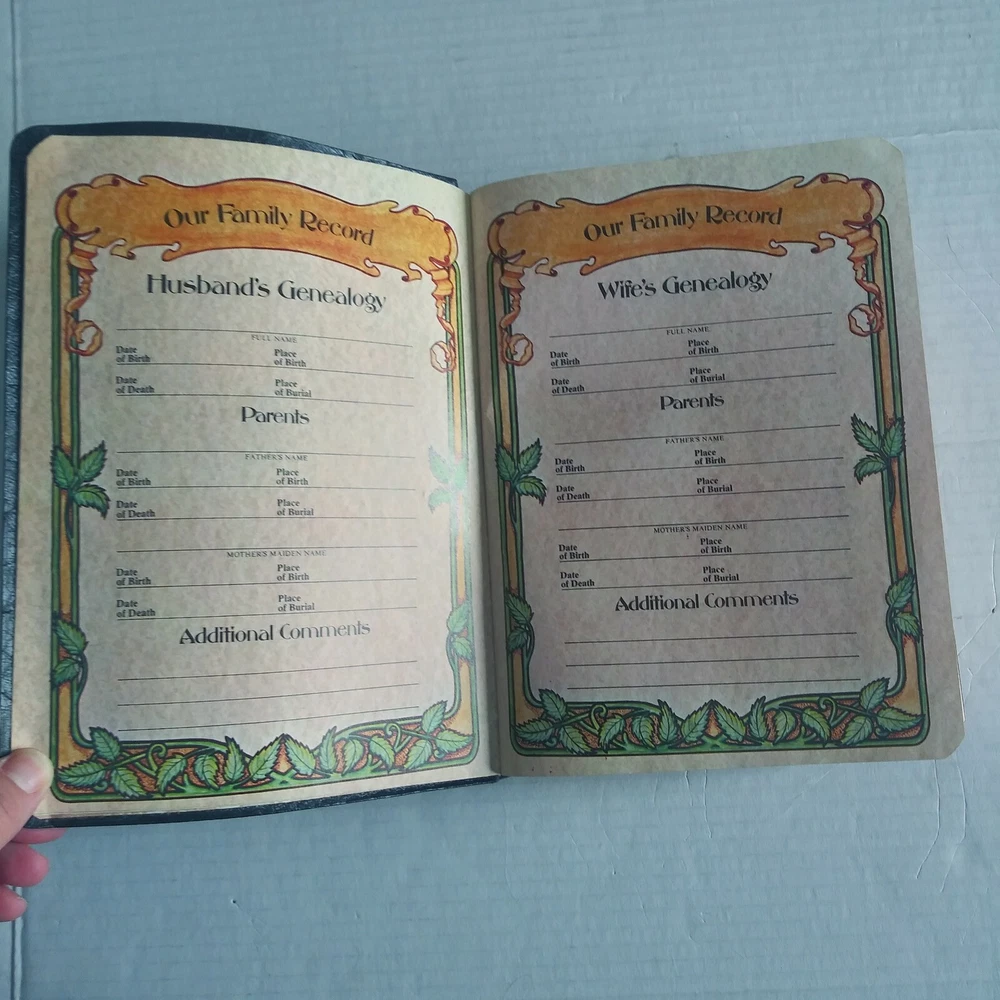 Our Family Record
Husband's Genealogy
FULL NAME
Date of Birth Place of Birth
Date of Death Place of Burial
Parents
FATHER'S NAME
Date of Birth Place of Birth
Date of Death Place of Burial
MOTHER'S MAIDEN NAME
Date of Birth Place of Birth
Date of Death Place of Burial
Additional Comments
Our Family Record
Wife's Genealogy
FULL NAME
Date of Birth Place of Birth
Date of Death Place of Burial
Parents
FATHER'S NAME
Date of Birth Place of Birth
Date of Death Place of Burial
MOTHER'S MAIDEN NAME
Date of Birth Place of Birth
Date of Death Place of Burial
Additional Comments